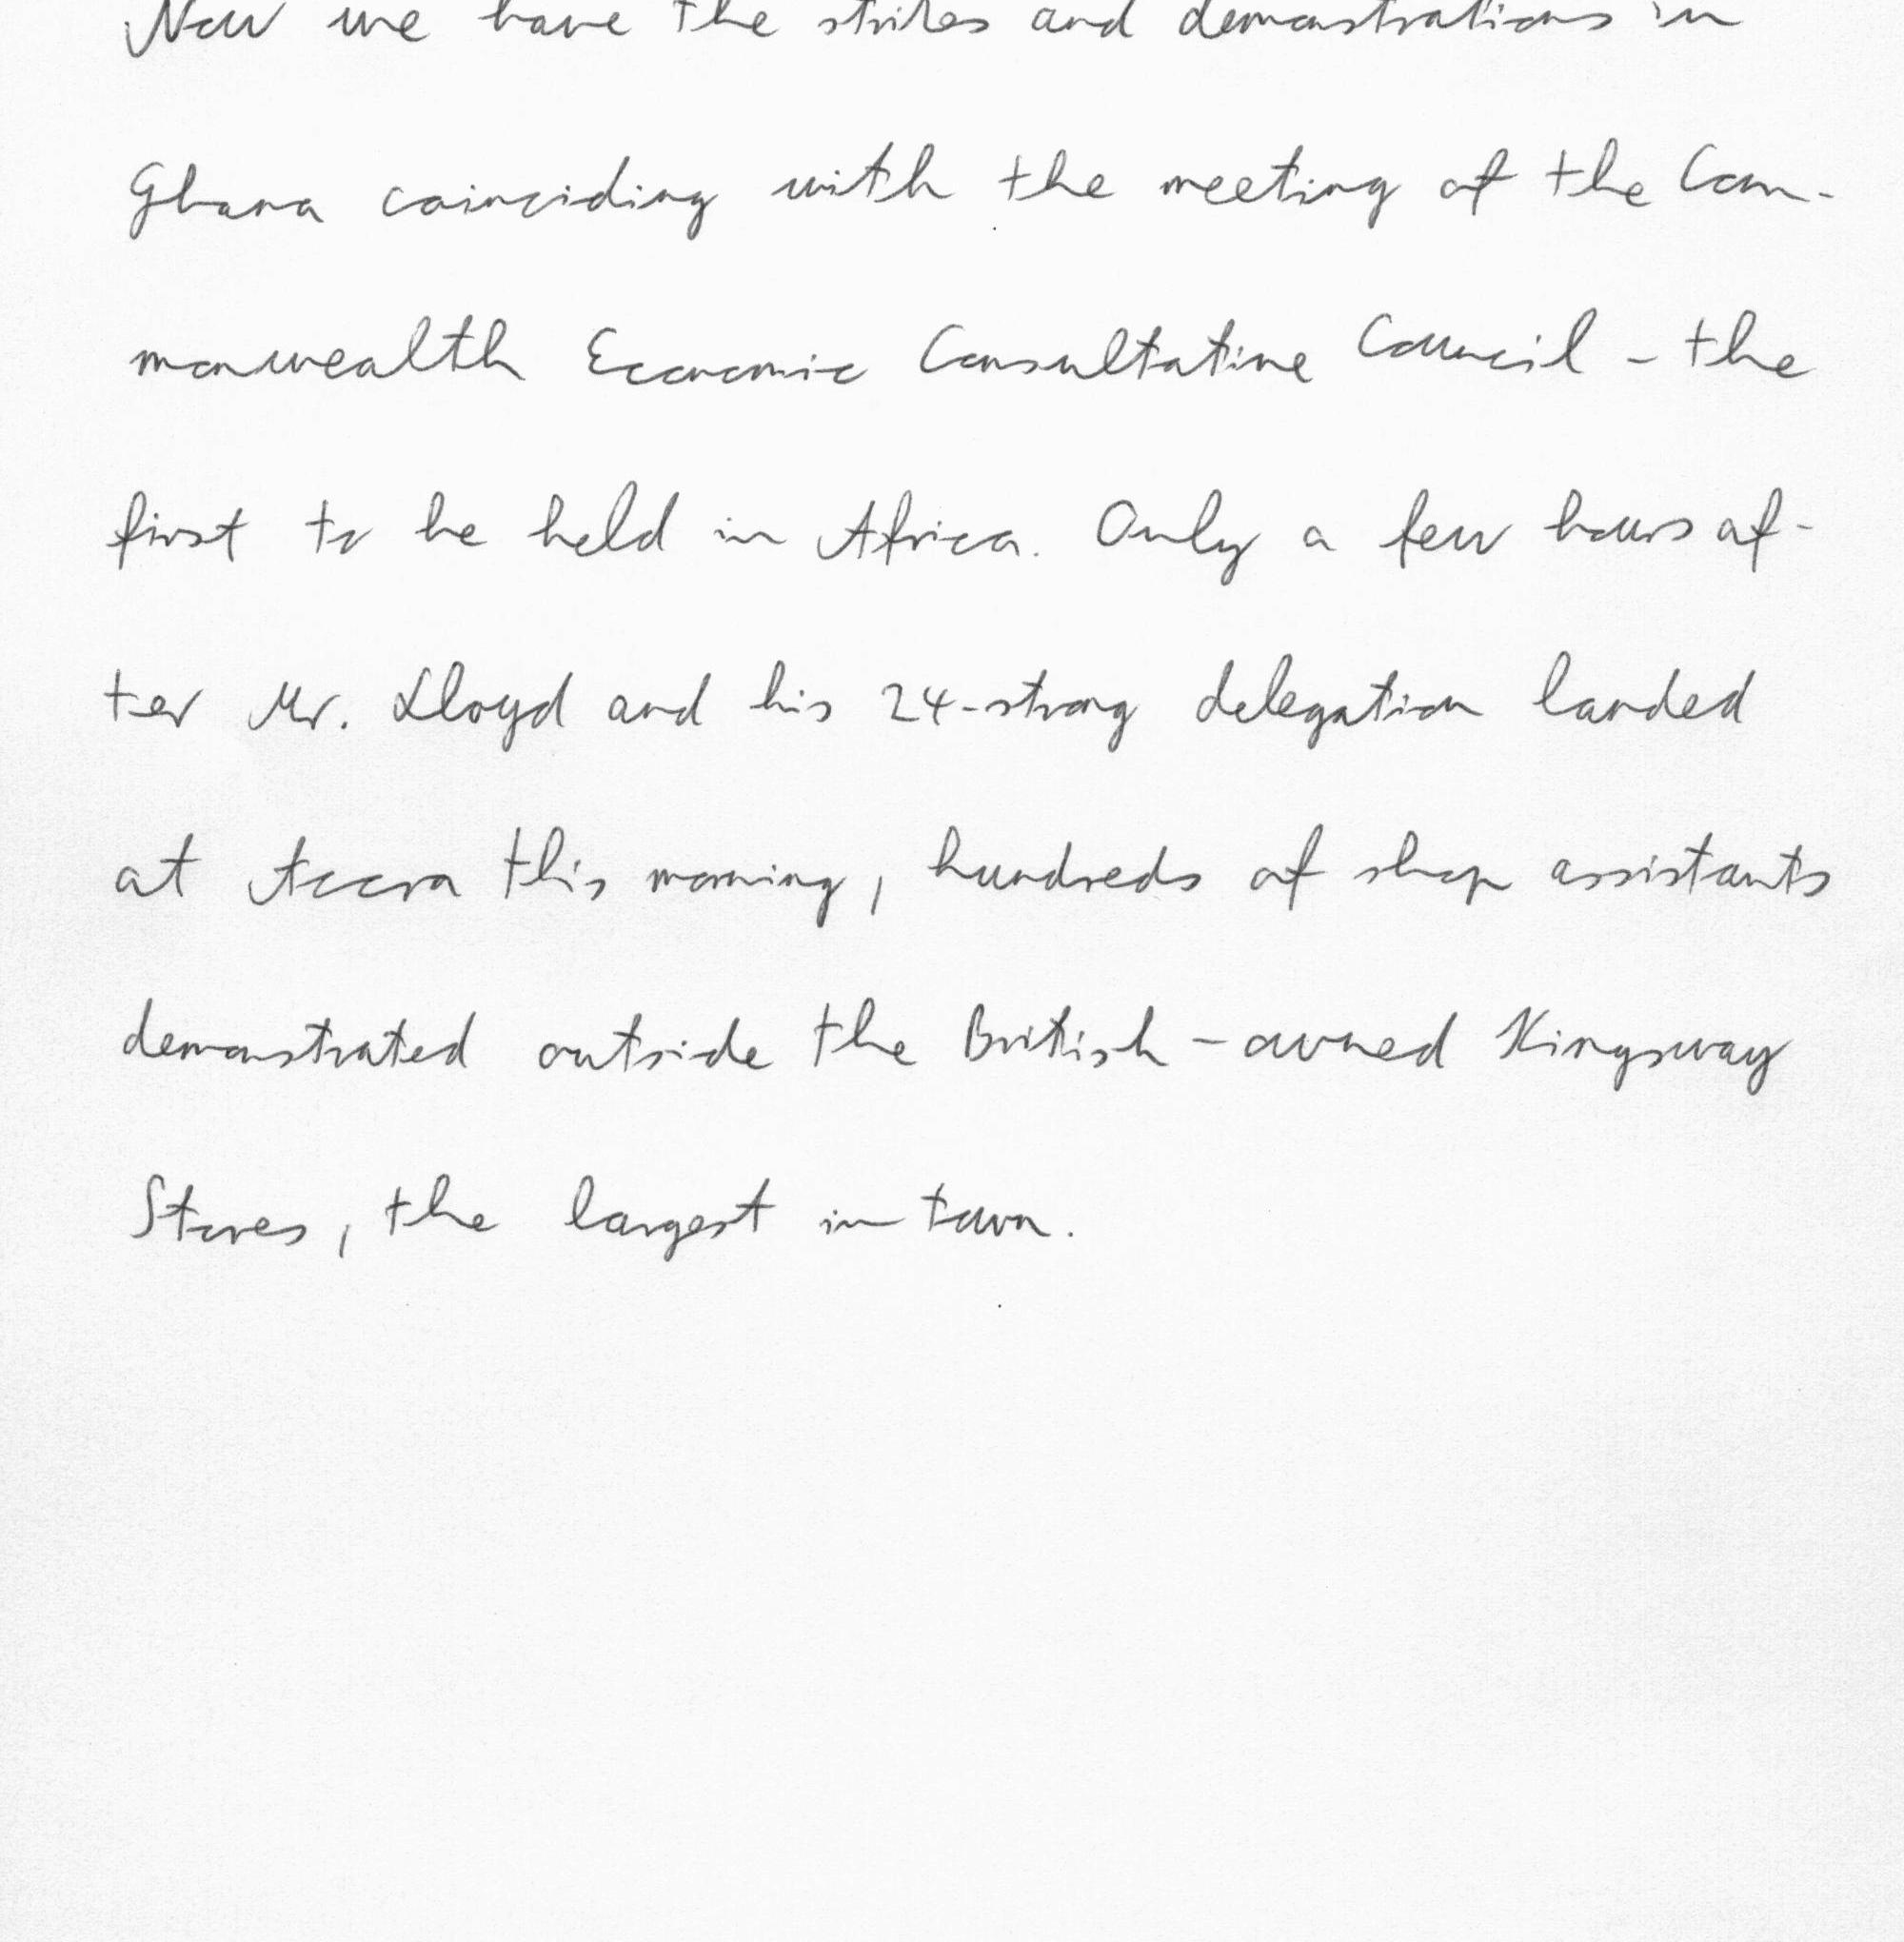 Now we have the strikes and demonstrations in
Ghana coinciding with the meeting of the Com-
monwealth Economic Consultative Council - the
first to be held in Africa. Only a few hours af-
ter Mr. Lloyd and his 24-strong delegation landed
at Accra this morning, hundreds of shop assistants
demonstrated outside the British-owned Kingsway
Stores, the largest in town.